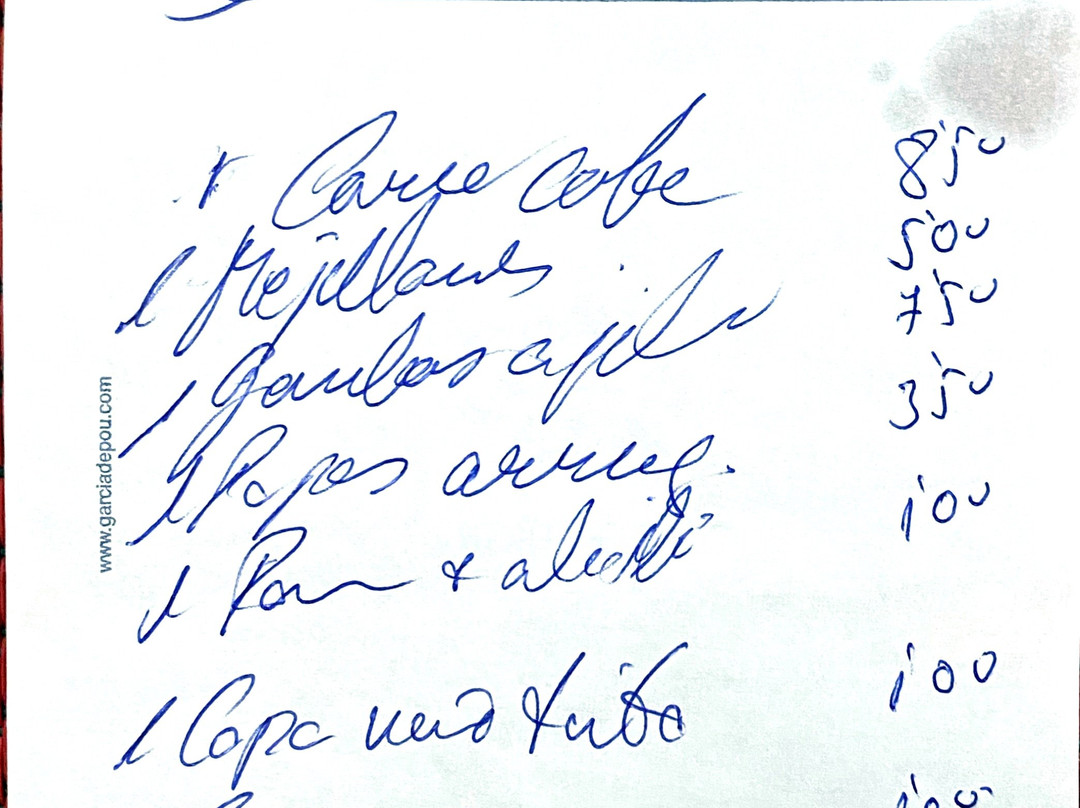 1 Carne cabra 8'50
1 Mejillones 5'00
1 Gambas ajillo 7'50
1 Papas arrug. 3'50
1 Pan + alioli 1'00
1 Copa vino tinto 1'00
1'00
www.garciadepou.com